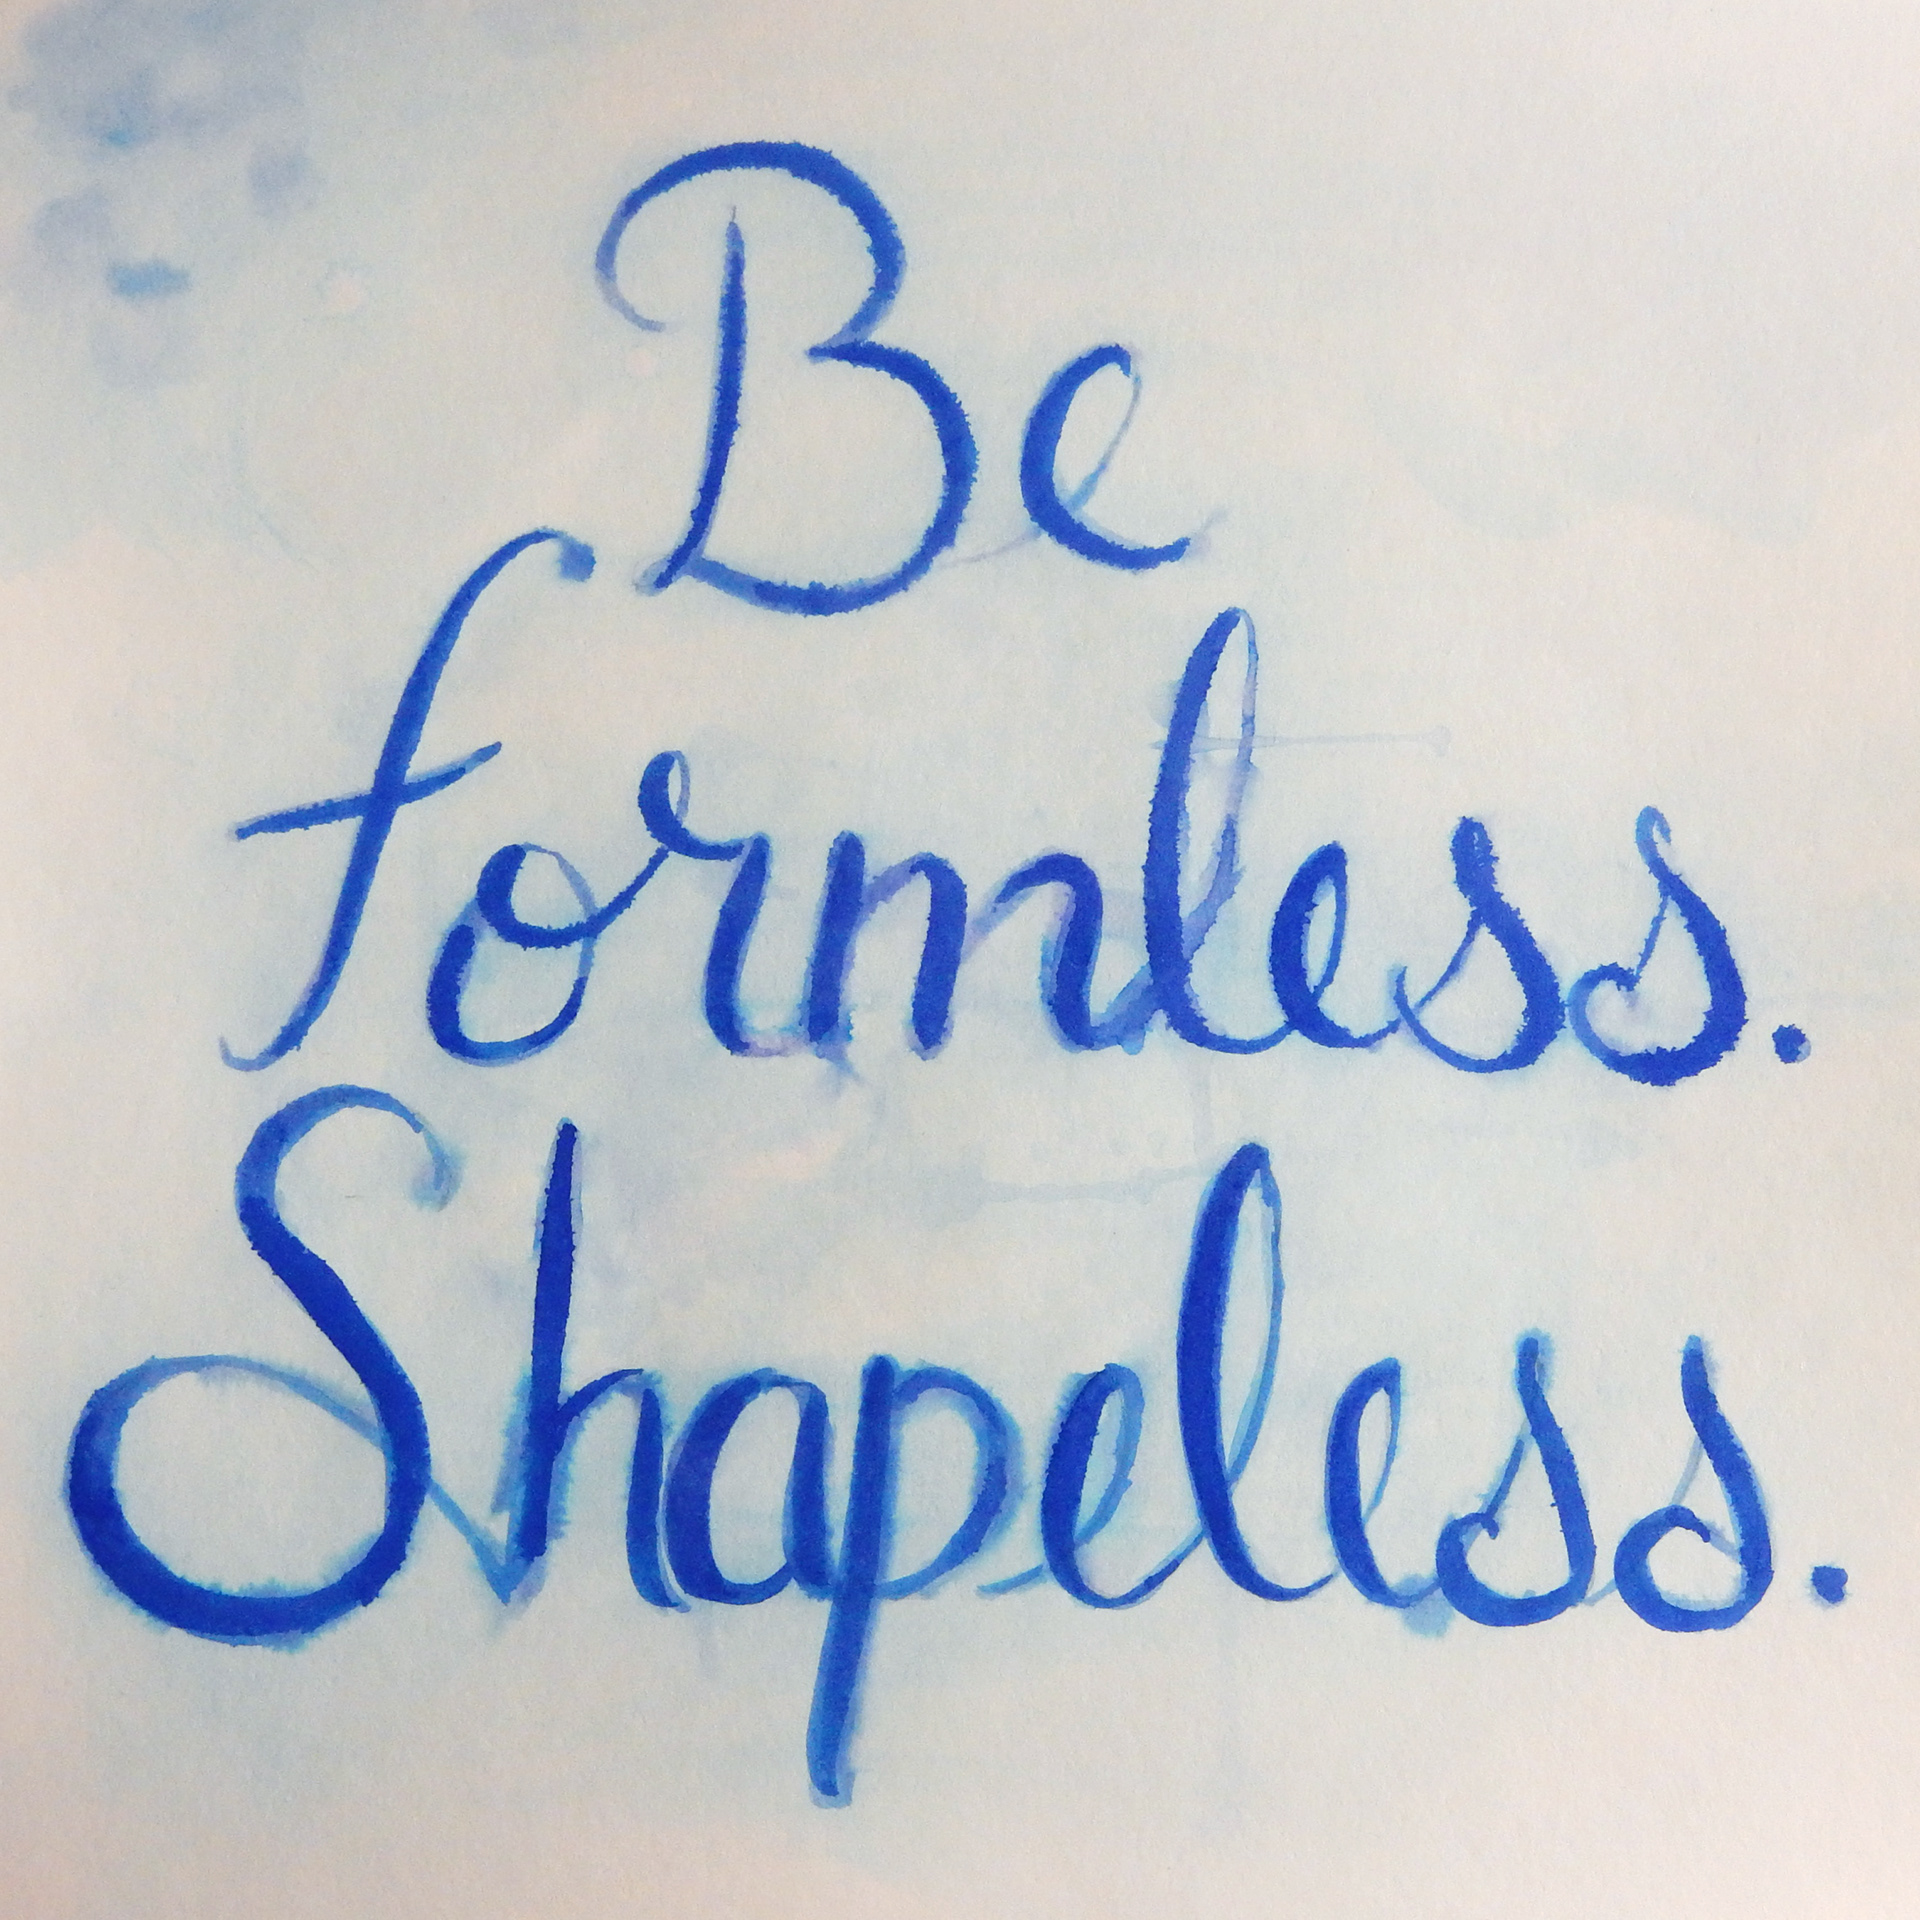 Be
formless.
Shapeless.